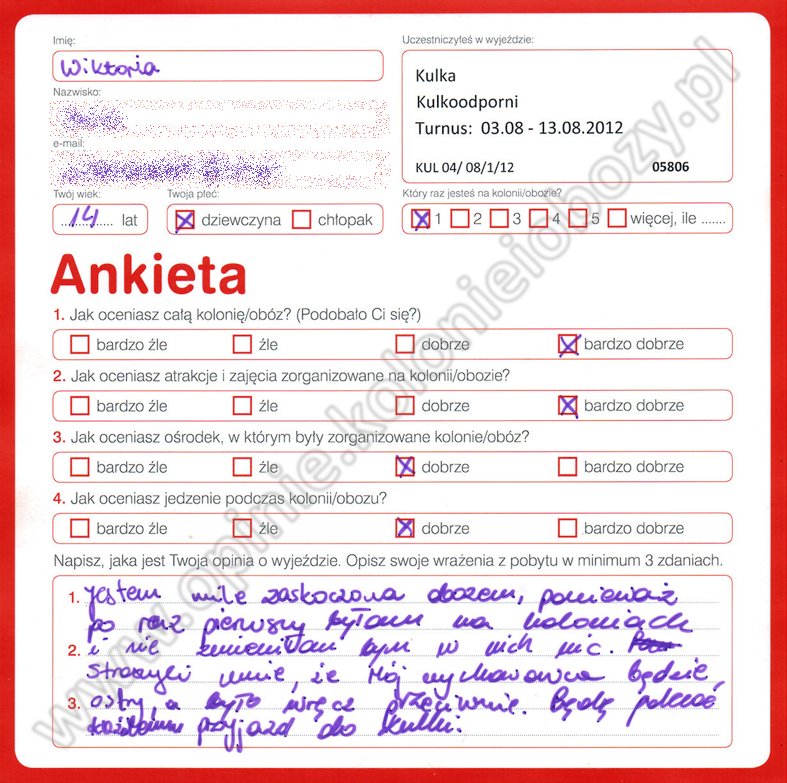 Imię:
Wiktoria
Nazwisko:
e-mail:
Twój wiek:
14 lat
Twoja płeć:
dziewczyna chłopak
Uczestniczyłeś w wyjeździe:
Kulka
Kulkoodporni
Turnus: 03.08 - 13.08.2012
KUL 04/ 08/1/12 05806
Który raz jesteś na kolonii/obozie?
1 2 3 4 5 więcej, ile .......
Ankieta
1. Jak oceniasz całą kolonię/obóz? (Podobało Ci się?)
bardzo źle źle dobrze bardzo dobrze
2. Jak oceniasz atrakcje i zajęcia zorganizowane na kolonii/obozie?
bardzo źle źle dobrze bardzo dobrze
3. Jak oceniasz ośrodek, w którym były zorganizowane kolonie/obóz?
bardzo źle źle dobrze bardzo dobrze
4. Jak oceniasz jedzenie podczas kolonii/obozu?
bardzo źle źle dobrze bardzo dobrze
Napisz, jaka jest Twoja opinia o wyjeździe. Opisz swoje wrażenia z pobytu w minimum 3 zdaniach.
1. Jestem mile zaskoczona obozem, ponieważ
po raz pierwszy byłam na koloniach
2. i nie zmieniłam bym w nich nic.
Straszyli mnie, że mój wychowawca będzie
3. ostry, a było wręcz przeciwnie. Będę polecać
przyjazd do Kulki.
www.opinie.kolonieiobozy.pl